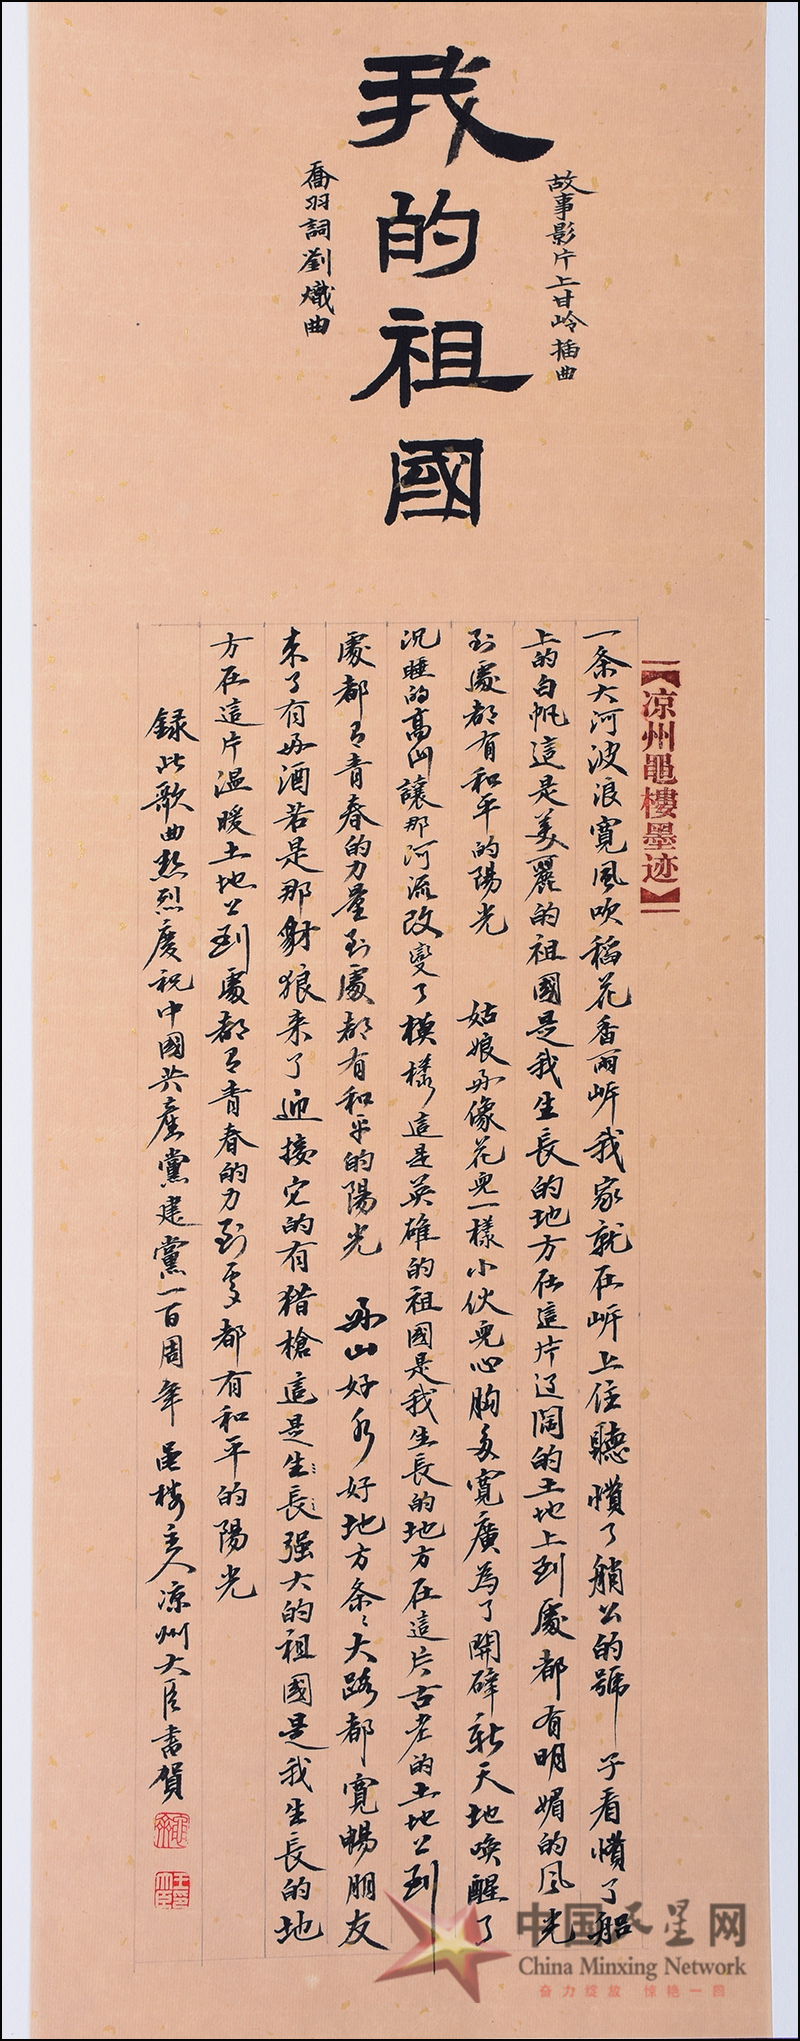 我的祖國
故事影片上甘岭插曲
喬羽詞劉熾曲
【凉州黽樓墨迹】
一条大河波浪寬風吹稻花香兩岍我家就在岍上住聽慣了艄公的號子看慣了船
上的白帆這是美麗的祖國是我生長的地方在這片辽闊的土地上到處都有明媚的風光
到處都有和平的陽光 姑娘好像花兒一樣小伙兒心胸多寬廣為了開辟新天地唤醒了
沉睡的高山讓那河流改變了模樣這是英雄的祖國是我生長的地方在這片古老的土地上到
處都有青春的力量到處都有和平的陽光 好山好水好地方条々大路都寬暢朋友
來了有好酒若是那豺狼来了迎接它的有猎槍這是生長强大的祖國是我生長的地
方在這片温暖土地上到處都有青春的力到處都有和平的陽光
録此歌曲熱烈慶祝中國共產黨建黨一百周年 黽樓主人凉州大臣書賀
中国民星网
China Minxing Network
奋力绽放 惊艳一回